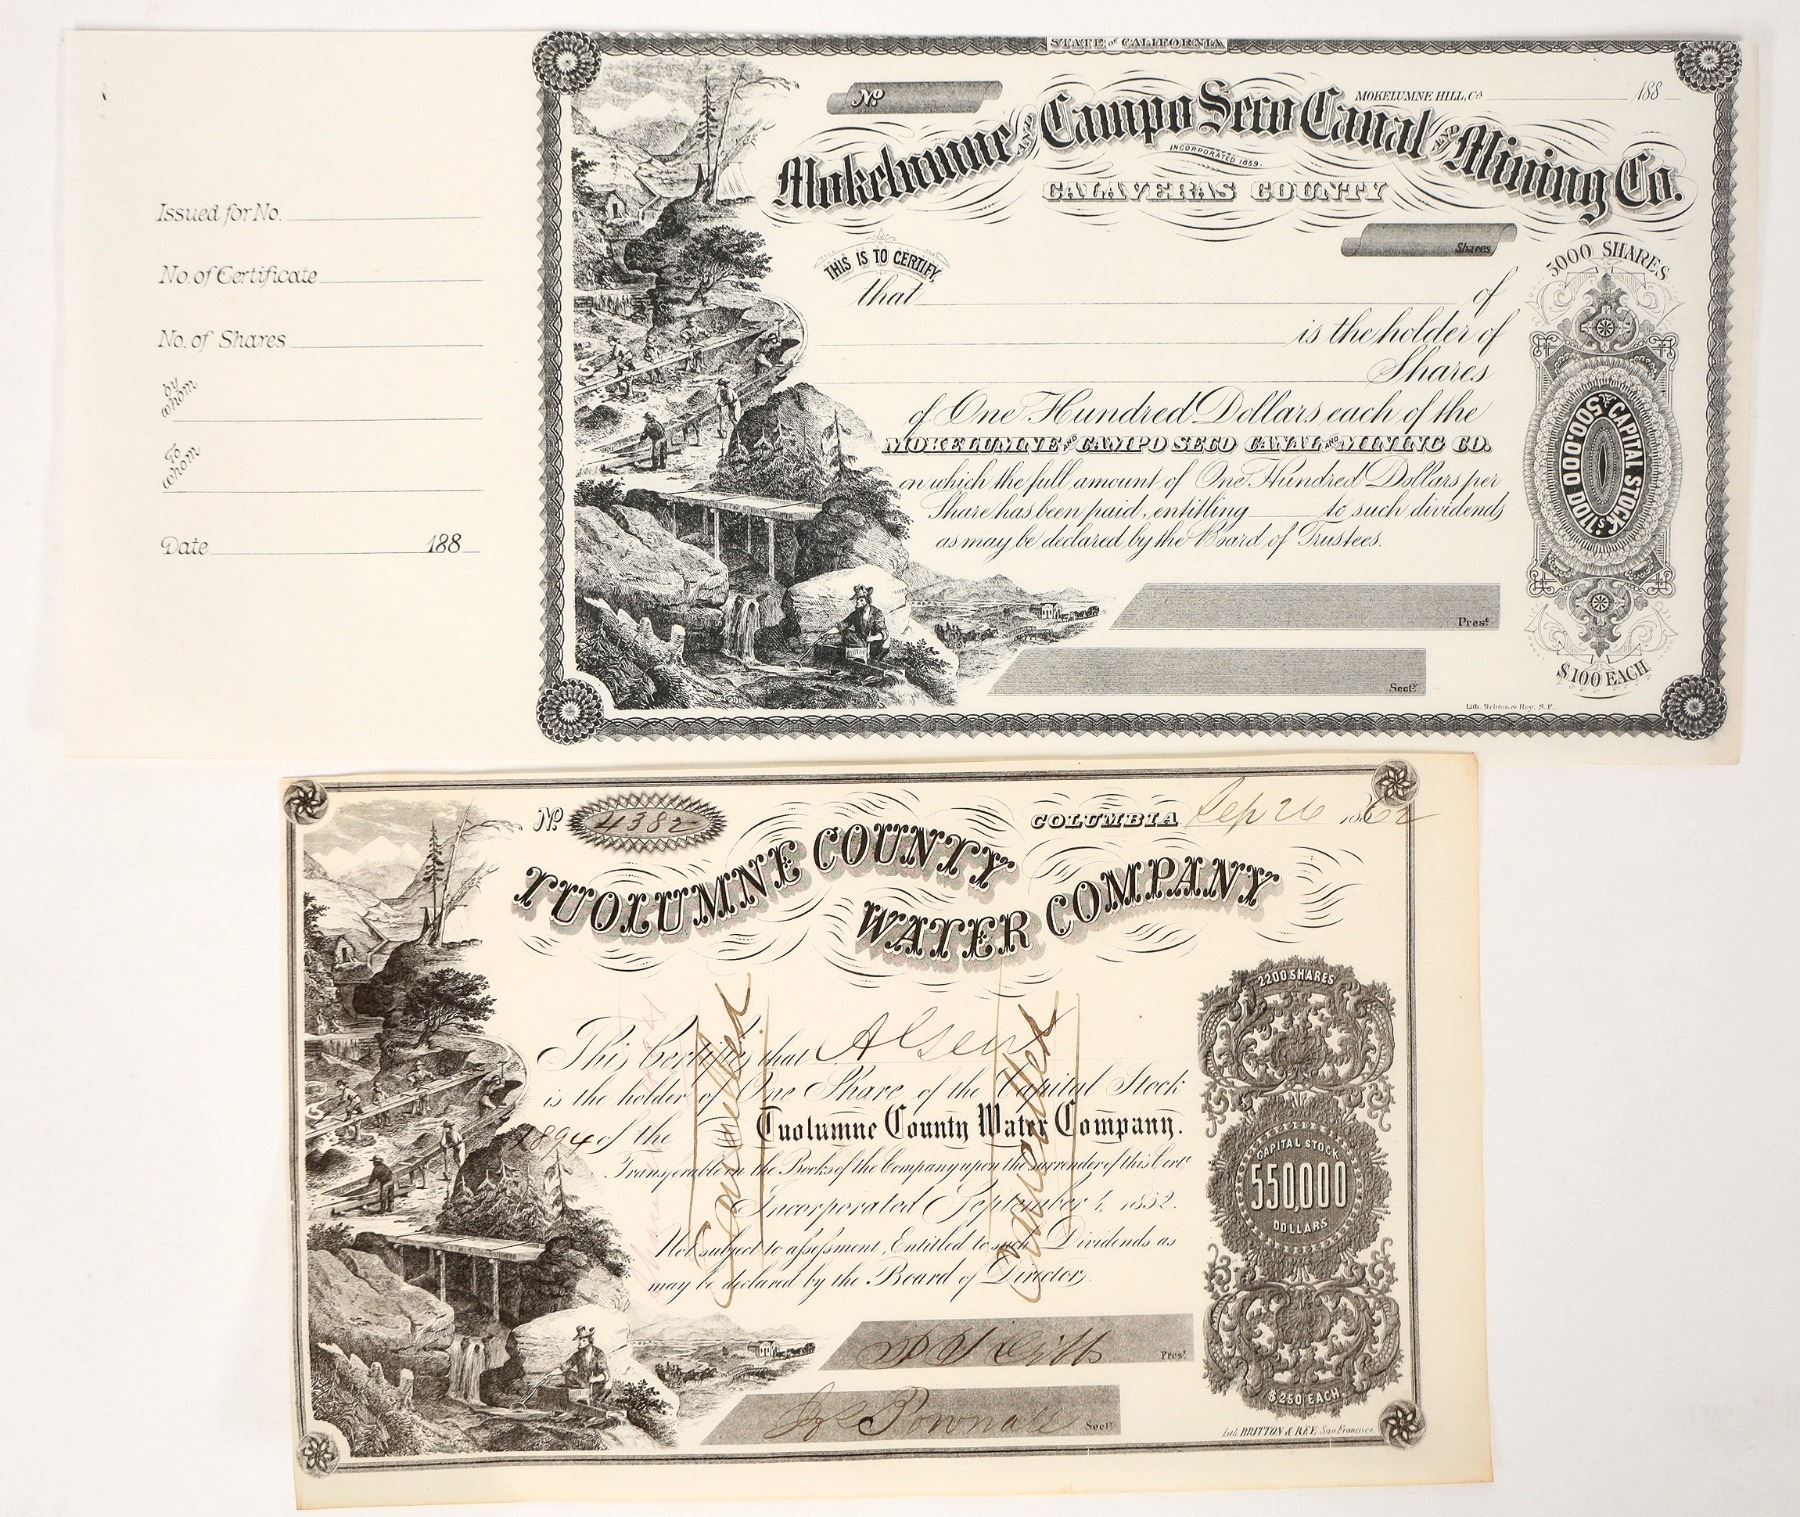 STATE of CALIFORNIA
No
MOKELUMNE HILL, Co 188
Mokelumne AND Campo Seco Canal AND Mining Co.
INCORPORATED 1859.
CALAVERAS COUNTY
Shares
THIS IS TO CERTIFY,
that of
is the holder of
Shares
of One Hundred Dollars each of the
MOKELUMNE AND CAMPO SECO CANAL AND MINING CO.
on which the full amount of One Hundred Dollars per
Share has been paid, entitling to such dividends
as may be declared by the Board of Trustees.
Prest
Secty
5000 SHARES
CAPITAL STOCK
500.000 DOLLS
$100 EACH
Lith. Britton & Rey, S. F.
Issued for No.
No. of Certificate
No. of Shares
by whom
To whom
Date 188
No 4382
COLUMBIA Sep 26 1862
TUOLUMNE COUNTY
WATER COMPANY
This Certifies that
is the holder of One Share of the Capital Stock
1894 of the Tuolumne County Water Company.
Transferable on the Books of the Company upon the surrender of this Cert
Incorporated September 4, 1852.
Not subject to assessment, Entitled to such Dividends as
may be declared by the Board of Directors.
Cancelled
Cancelled
Prest
Pownall Secty
2200 SHARES
CAPITAL STOCK
550,000
DOLLARS
$250 EACH
Lith. BRITTON & REY, San Francisco